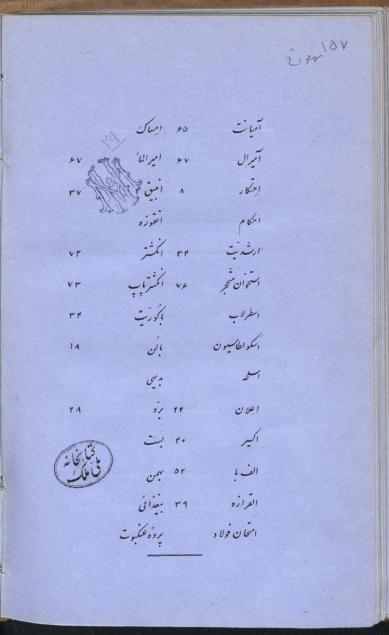 ۱۵۷
۲۹
آمیانت ۶۵ امساک
آمیرال ۶۷ امیرالما ۶۷
احتکار ۸ انبیق ۳۷
احکام انقوزه
ارشدیّت ۳۴ انگشتر ۷۲
استخوان متحجر ۷۶ انگشتر پاپ ۷۳
اسطرلاب باکوریّت ۳۴
اسکولطاسیون بالن ۱۸
اسلحه بدیهی
اعلان ۲۴ برّه ۲۸
اکسیر ۴۰ بست
الف با ۵۲ بهمن
القرازه ۳۹ بیغذائی
امتحان فولاد پرده عنکبوت
کتابخانه
ملی ملک